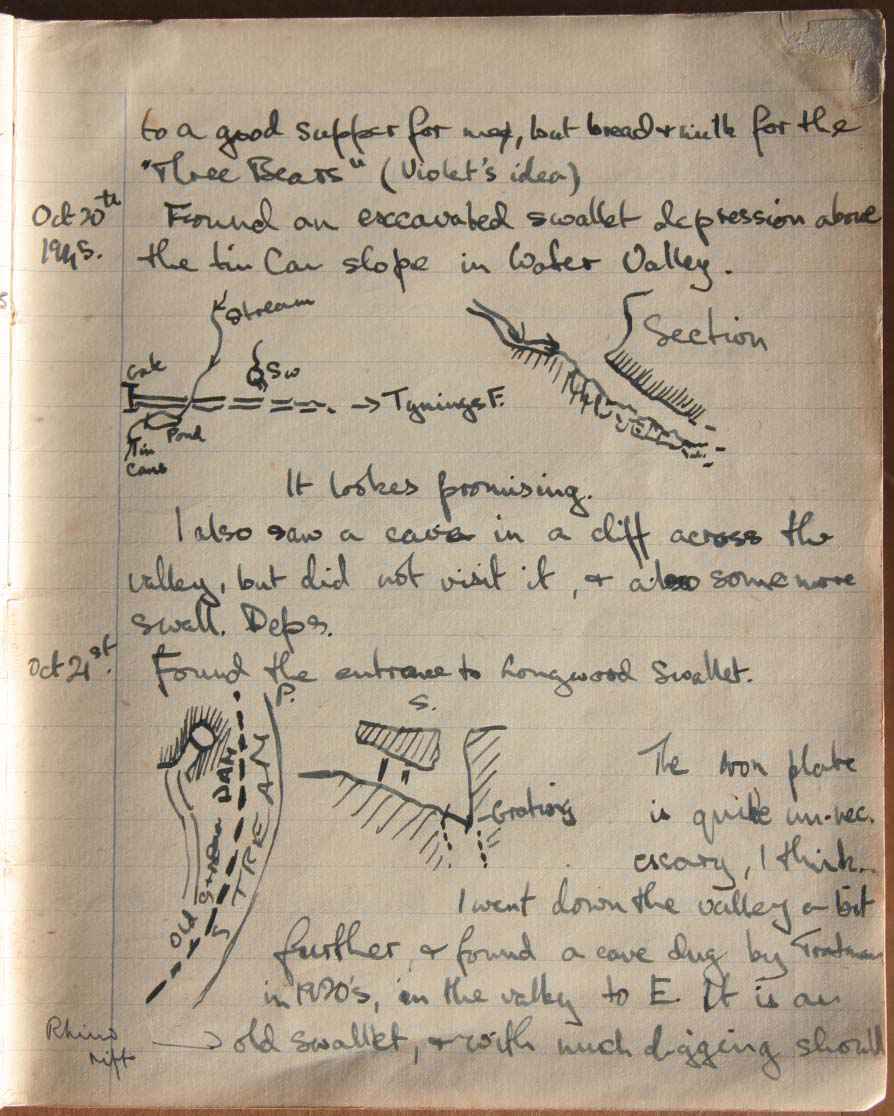 to a good supper for me, but bread + milk for the
"Three Bears" (Violet's idea)
Oct 20th 1945. Found an excavated swallet depression above
the tin Can slope in Water Valley.
Stream
Section
Gate
Sw
→ Tynings F.
Pond
Tin
Cans
It lookes promising.
I also saw a cave in a cliff across the
valley, but did not visit it, + also some more
swall. Deps.
Oct 21st. Found the entrance to Longwood Swallet.
P.
S.
DAM
STREAM
OLD Stream
Grating
The iron plate
is quite un-nec.
essary, I think.
I went down the valley a bit
further, + found a cave dug by Tratman
in 1920's, in the valley to E. It is an
Rhino
rift
→ old swallet, + with much digging should